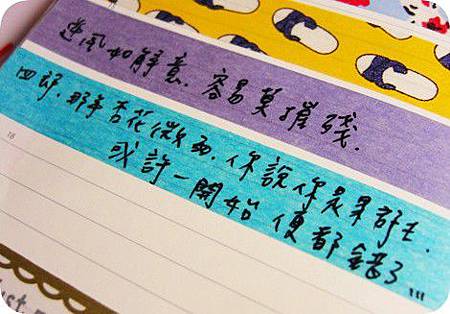 逆風如解意.容易莫摧殘.
四郎.那年杏花微雨.你說你是果郡王.
或許一開始便都錯了...
16